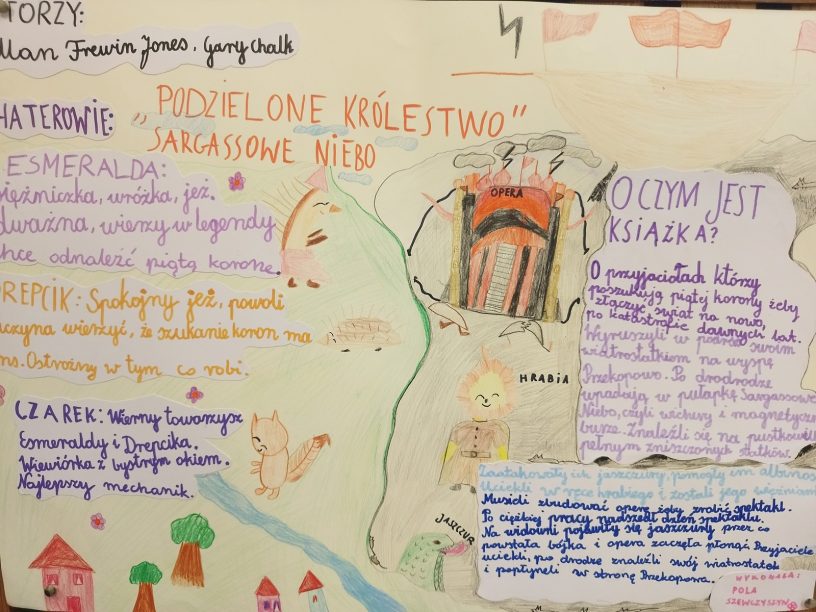 TORZY:
llan Frewin Jones, Gary Chalk
HATEROWIE:
"PODZIELONE KRÓLESTWO"
SARGASSOWE NIEBO
ESMERALDA:
iężniczka, wróżka, jeż.
dważna, wierzy w legendy
chce odnaleźć piątą koronę.
DREPCIK: Spokojny jeż, powoli
aczyna wierzyć, że szukanie koron ma
ens. Ostrożny w tym co robi.
CZAREK: Wierny towarzysz
Esmeraldy i Drepcika.
Wiewiórka z bystrym okiem.
Najlepszy mechanik.
OPERA
HRABIA
JASZCZUR
O CZYM JEST
KSIĄŻKA?
O przyjaciołach którzy
poszukują piątej korony żeby
złączyć świat na nowo,
po katastrofie dawnych lat.
Wyruszyli w podróż swoim
wiatrostatkiem na wyspę
Przekopowo. Po drodrodze
wpadają w pułapkę Sargassowe
Niebo, czyli wichury i magnetyczn
burze. Znaleźli się na pustkowi
pełnym zniszczonych statków.
Zaatakowały ich jaszczury, pomogły im albinos
Uciekli w ręce hrabiego i zostali jego więźniami
Musieli zbudować operę żeby zrobić spektakl.
Po ciężkiej pracy nadszedł dzień spektaklu.
Na widowni pojawiły się jaszczury przez co
powstała bójka i opera zaczęła płonąć. Przyjaciele
uciekli, po drodze znaleźli swój wiatrostatek
i popłynęli w stronę Przekopowa.
WYKONAŁA:
POLA
SZEWCZYSZYN